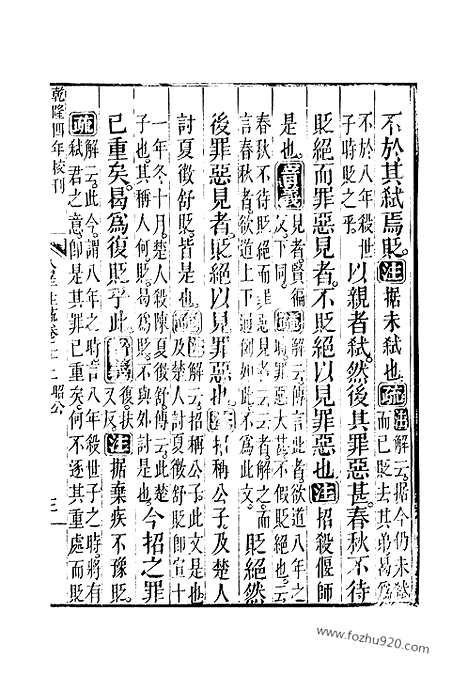 不於其弑焉貶。注據未弑也。疏注解云據今仍未弑
而已貶去其弟曷爲
不於八年殺世
子時貶之乎
以親者弑然後其罪惡甚春秋不待
貶絕而罪惡見者。不貶絕以見罪惡也。注招殺偃師
是也。音義見者賢徧
反。下同。
疏解云傳言此者欲道八年之
時罪惡大甚不假貶絕云
春秋不待貶絕而罪惡見者云者解之而
言春秋者欲道上下通例如此不爲此文
貶絕然
後罪惡見者。貶絕以見罪惡也。注招稱公子及楚人
討夏徵舒貶皆是也。疏注解云招稱公子此文是也
及楚人討夏徵舒貶即宣十
一年冬十月楚人殺陳夏徵舒傳云此楚
子也其稱人何貶曷爲貶不與外討是也
今招之罪
已重矣。曷爲復貶乎此。音義復扶
又反。
注據棄疾不豫貶。
疏解云此今謂八年之時言八年殺世子之時將有
弑君之意即是其罪已重矣何不逐其重處而貶
乾隆四年校刊
公羊注疏卷二十二 昭公
三
www.fozhu920.com